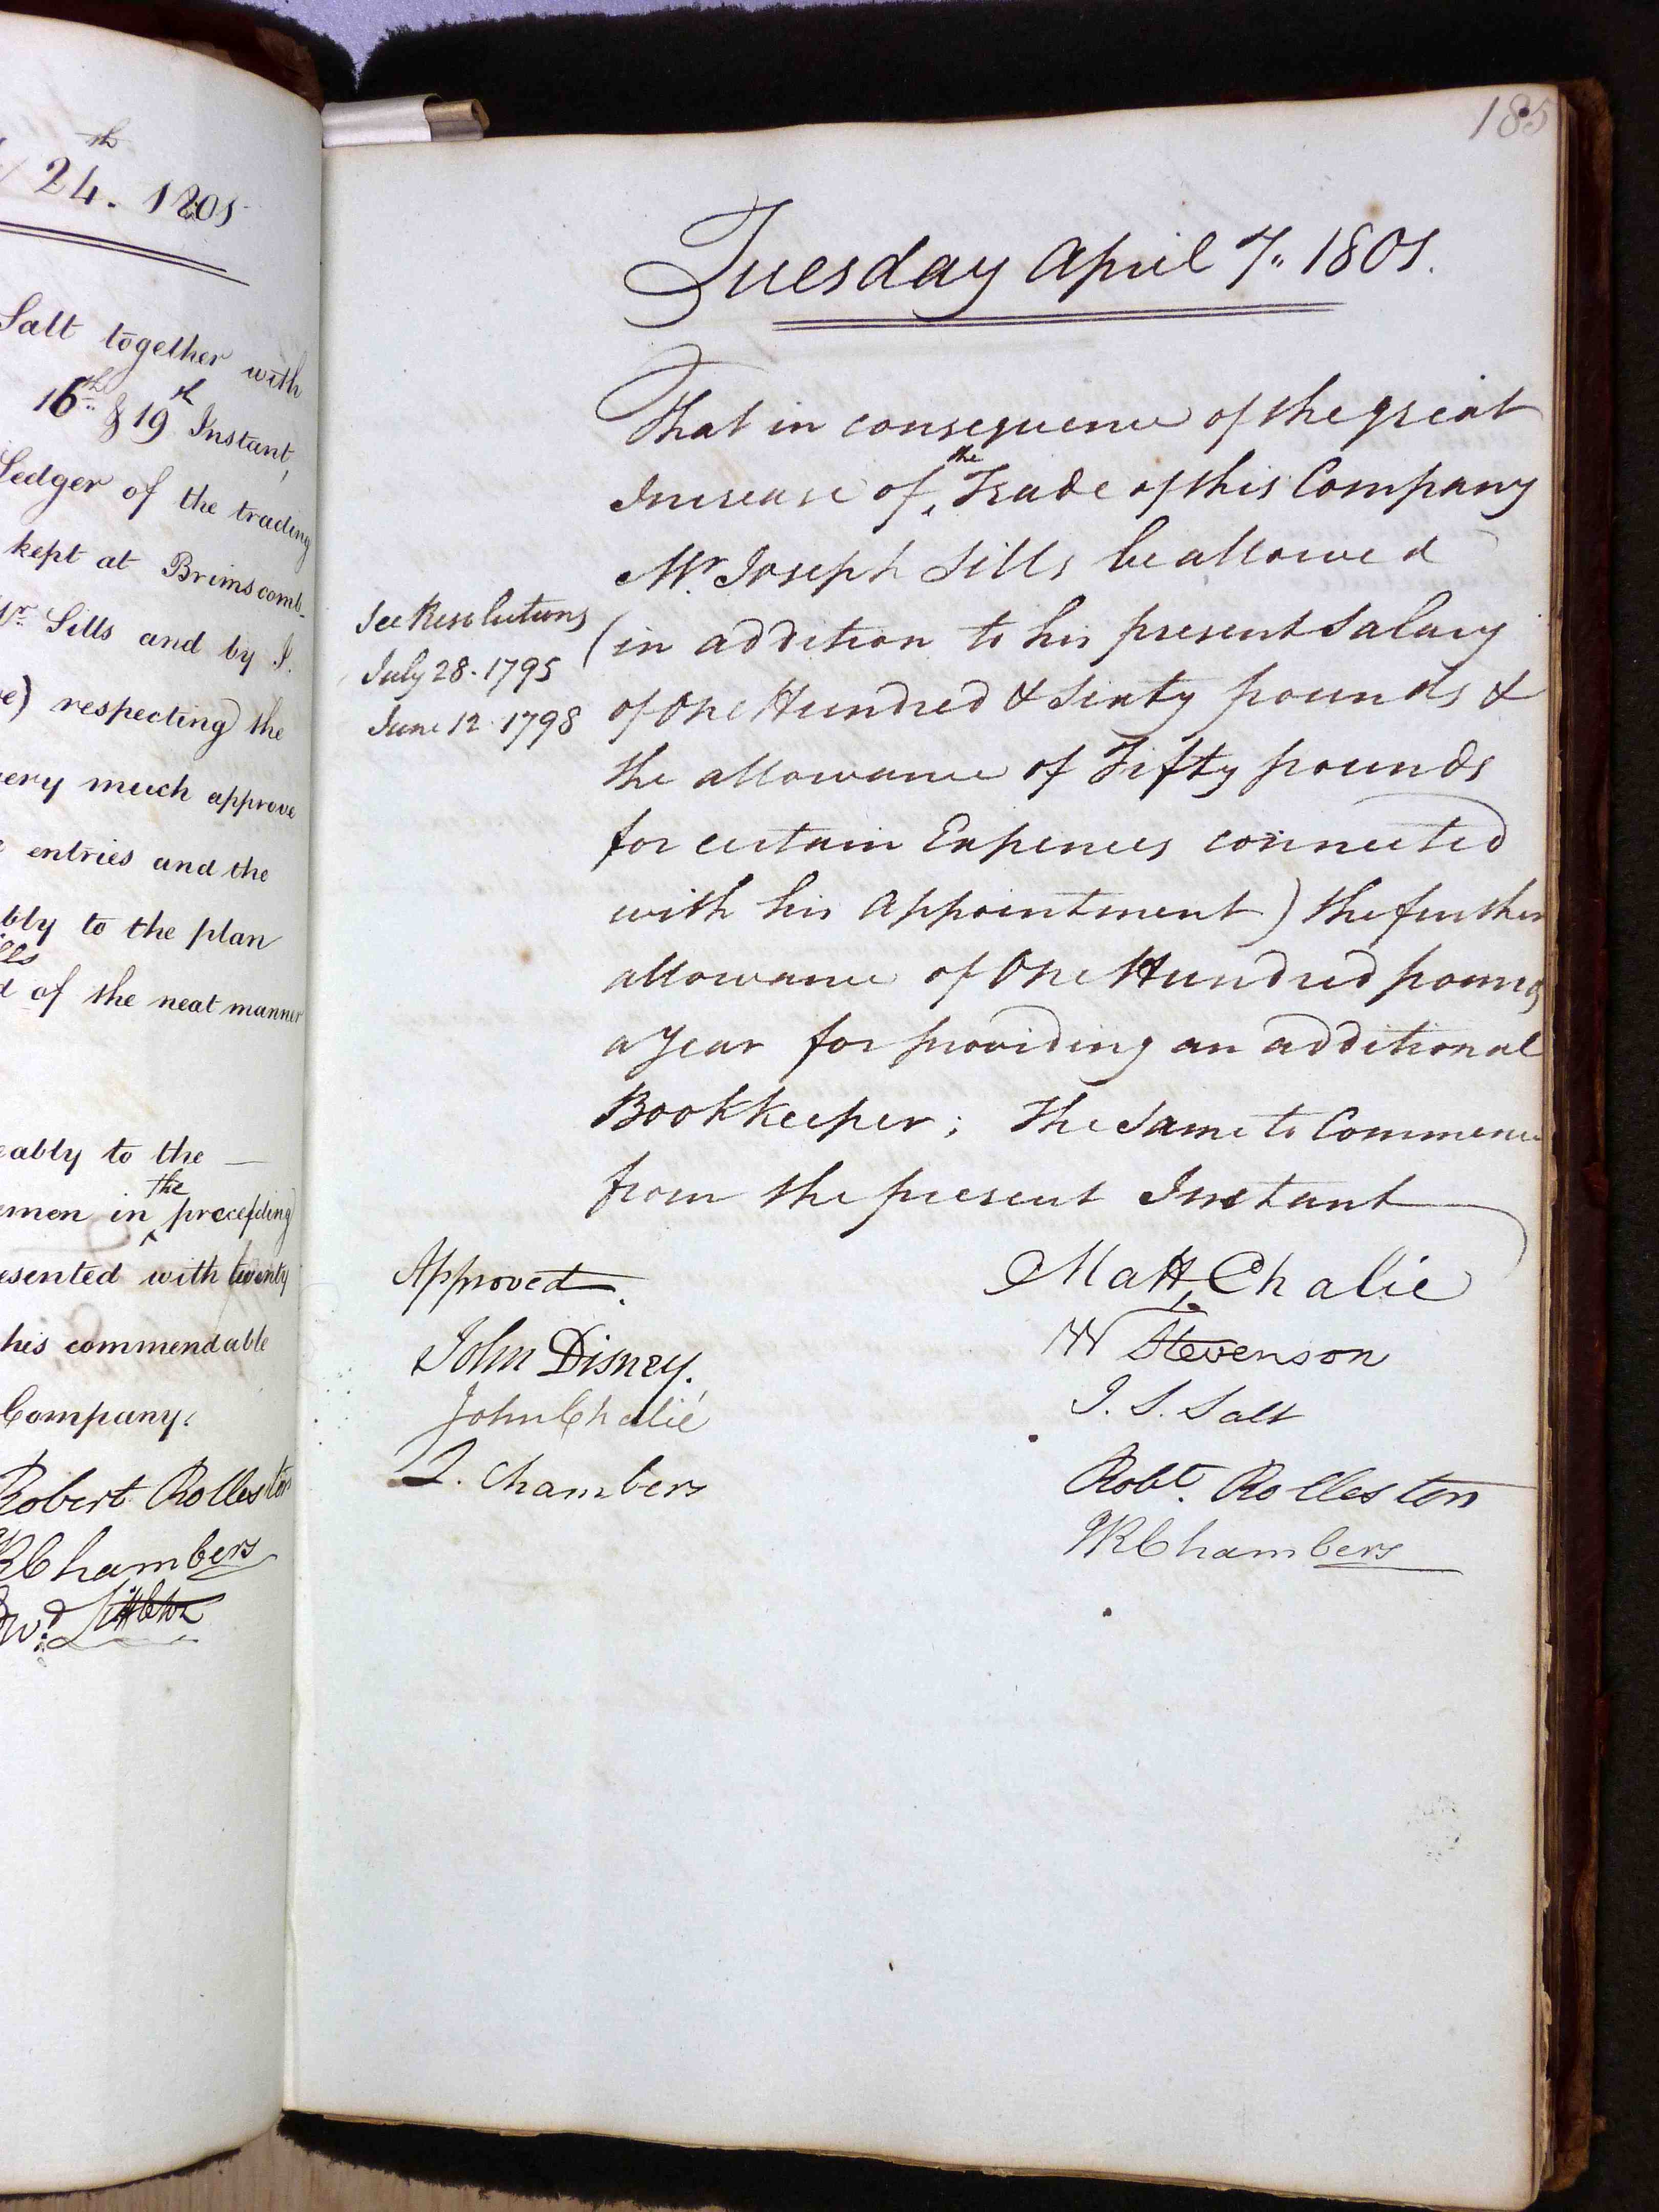 th
24. 1801
Salt together with
16th & 19th Instant,
Ledger of the trading
kept at Brimscomb
Mr. Sills and by I.
respecting the
very much approve
entries and the
to the plan
of the neat manner
to the
the
in preceeding
with twenty
his commendable
Company.
Robert Rolleston
WRChambers
185
Tuesday April 7.. 1801.
That in consequence of the great
the
Increase of Trade of this Company
Mr. Joseph Sills be allowed
See Resolutions
July 28. 1795
June 12. 1798
(in addition to his present Salary
of One Hundred & Sixty pounds &
the allowance of Fifty pounds
for certain Expences connected
with his Appointment) the further
allowance of One Hundred pounds
a Year for providing an additional
Bookkeeper; The Same to Commence
from the present Instant
Approved.
John Disney.
John Chalié
J. Chambers
Matt. Chalie
W Stevenson
J. S. Salt
Robt. Rolleston
WRChambers